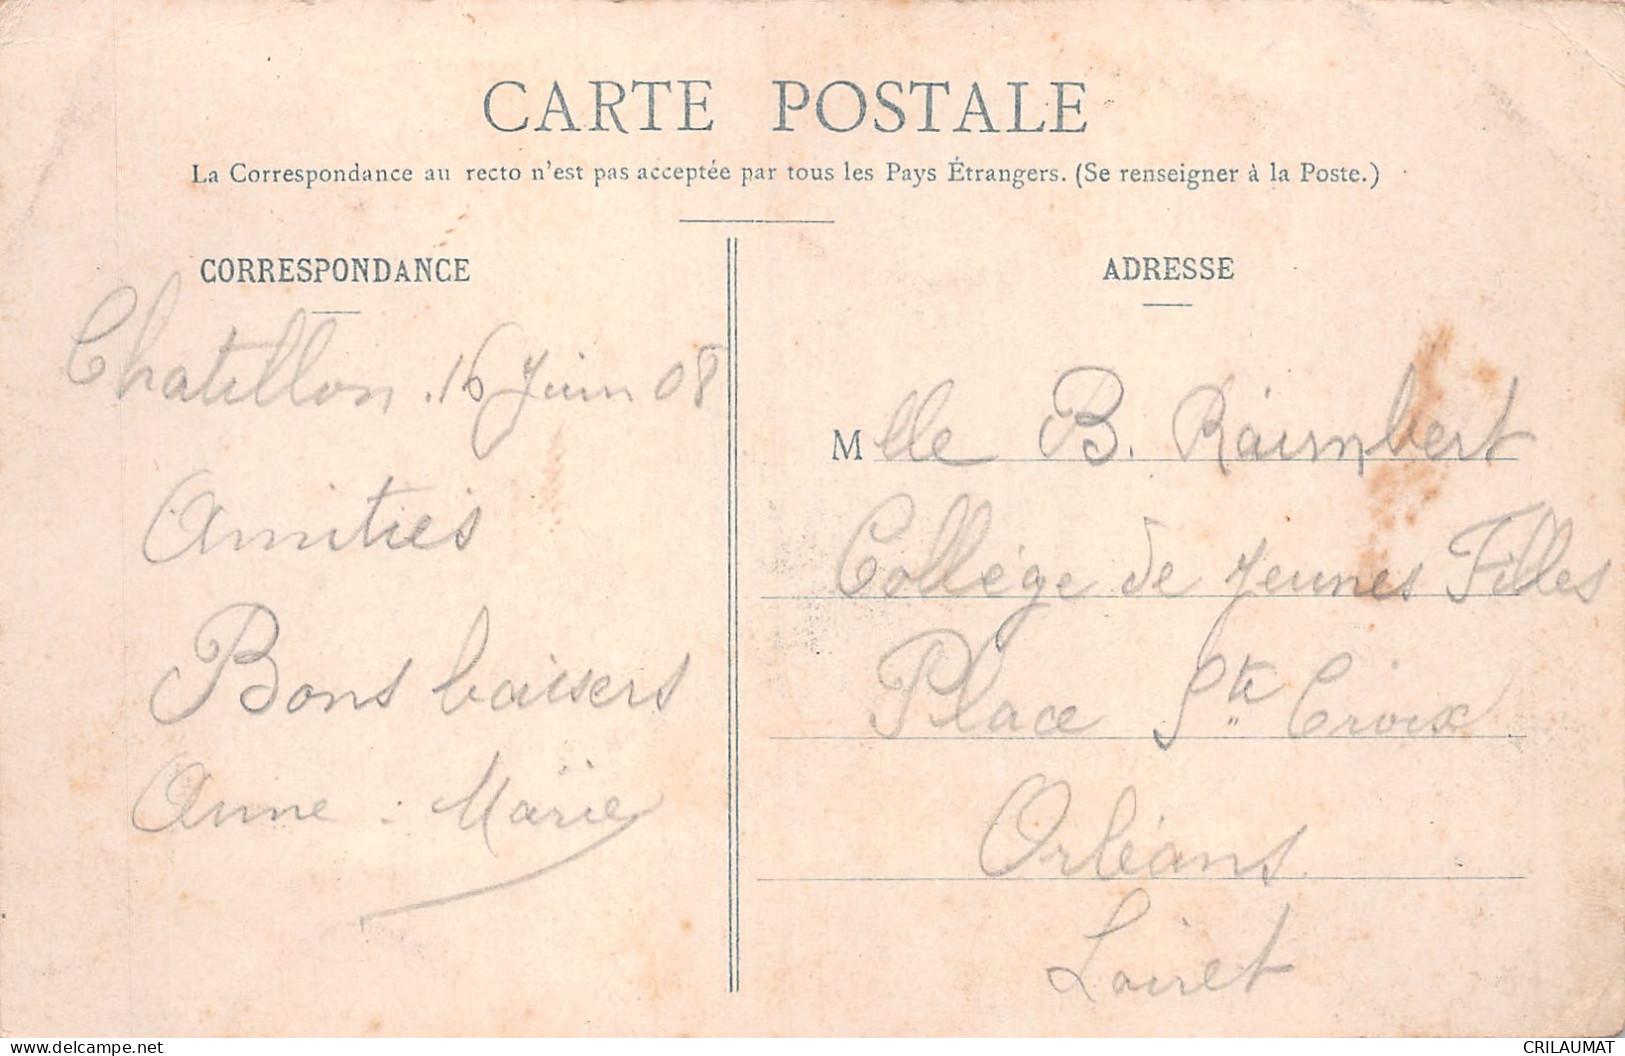 CARTE POSTALE
La Correspondance au recto n'est pas acceptée par tous les Pays Étrangers. (Se renseigner à la Poste.)
CORRESPONDANCE
Chatillon. 16 Juin 08
Amitiés
Bons baisers
Anne-Marie
ADRESSE
Mlle B. Raimbert
Collége de Jeunes Filles
Place Ste Croix
Orléans
Loiret
delcampe.net
CRILAUMAT